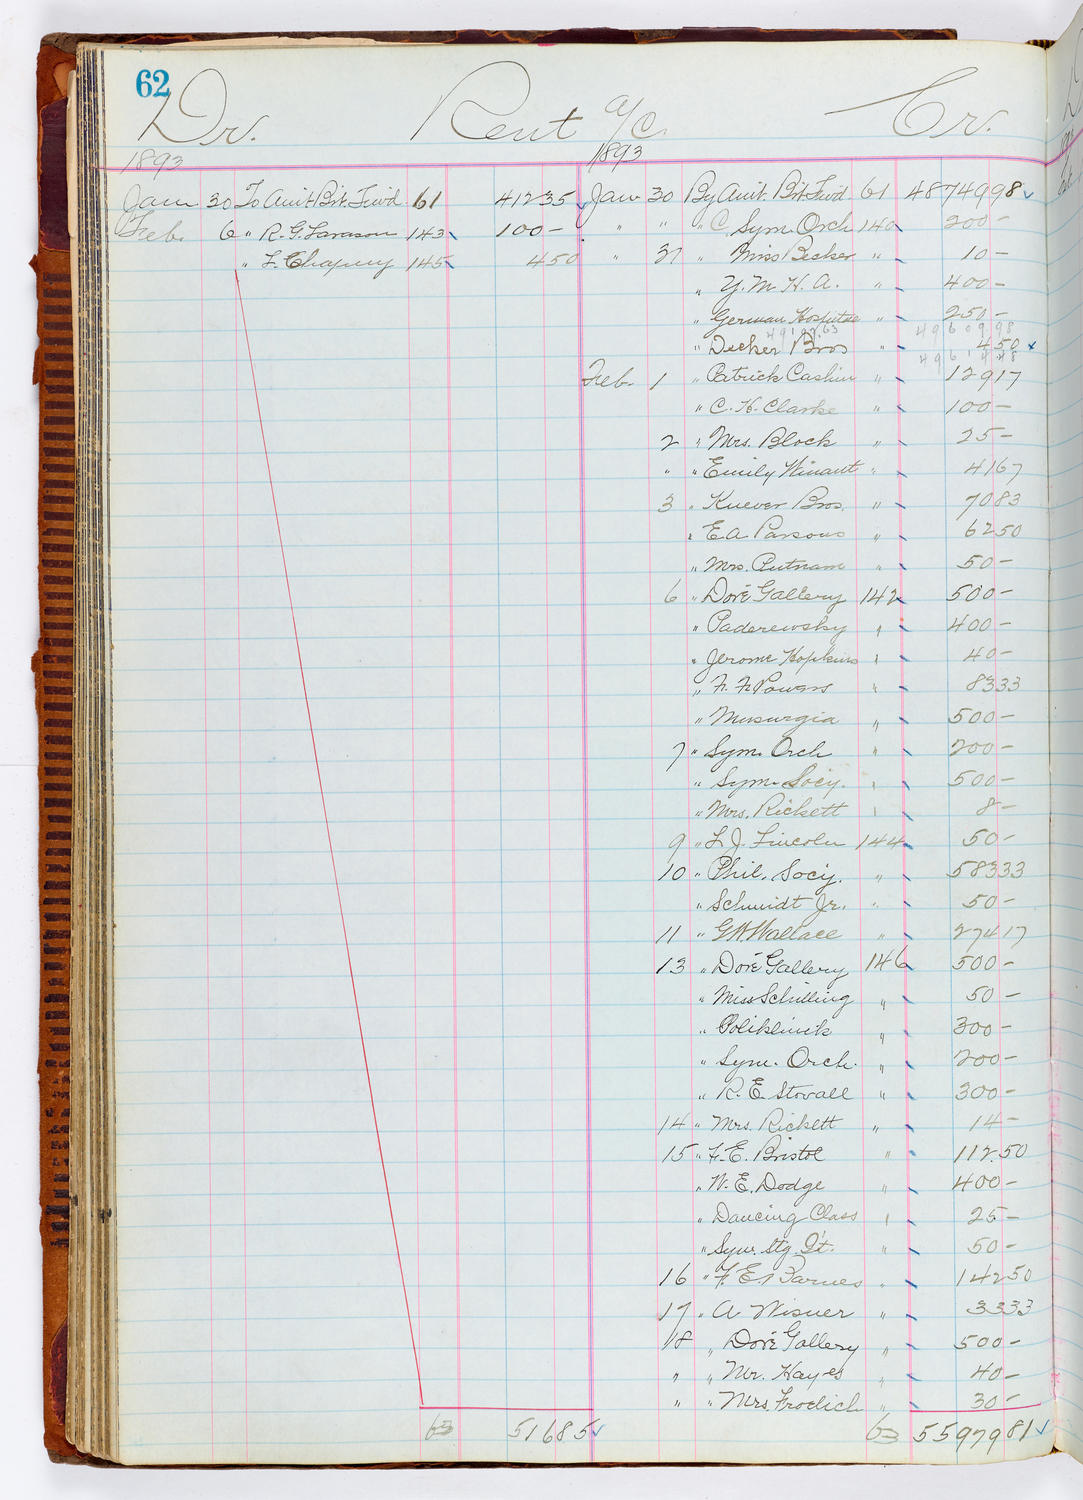 62
Dr. Rent a/c Cr.
1893 1893
Jan 30 To Amt Brt Fwd 61 41235 Jan 30 By Amt. Brt Fwd 61 4874998
Feb. 6 " R. G. Larason 143 100 - " " " C. Sym. Orch 140 200 -
" F. Chapuy 145 450 " 31 " Miss Becker " 10 -
" Y. M. H. A. " 400 -
" German Hospital " 250 -
4960998
" Decker Bros " 450
Feb. 1 " Patrick Cashin " 12917
" C. H. Clarke " 100 -
2 " Mrs. Block " 25 -
" " Emily Winant " 4167
3 " Knever Bros. " 7083
" E A Parsons " 6250
" Mrs. Putnam " 50 -
6 " Doré Gallery 142 500 -
" Paderewsky " 400 -
" Jerome Hopkins " 40 -
" F. F. Powers " 8333
" Musurgia " 500 -
7 " Sym. Orch " 200 -
" Sym. Socy. " 500 -
" Mrs. Rickett " 8 -
9 " L. J. Lincoln 144 50 -
10 " Phil. Socy. " 58333
" Schmidt Jr. " 50 -
11 " G W Wallace " 27417
13 " Doré Gallery 146 500 -
" Miss Schilling " 50 -
" Poliklinik " 300 -
" Sym. Orch. " 200 -
" R. E. Stovall " 300 -
14 " Mrs. Rickett " 14 -
15 " F. E. Bristol " 112.50
" W. E. Dodge " 400 -
" Dancing Class " 25 -
" Sym. Stg. Qt. " 50 -
16 " F. E. Barnes " 14250
17 " A. Wisner " 3333
18 " Doré Gallery " 500 -
" " Mr. Hayes " 40 -
" " Mrs. Froelich " 30 -
63 51685 63 5597981